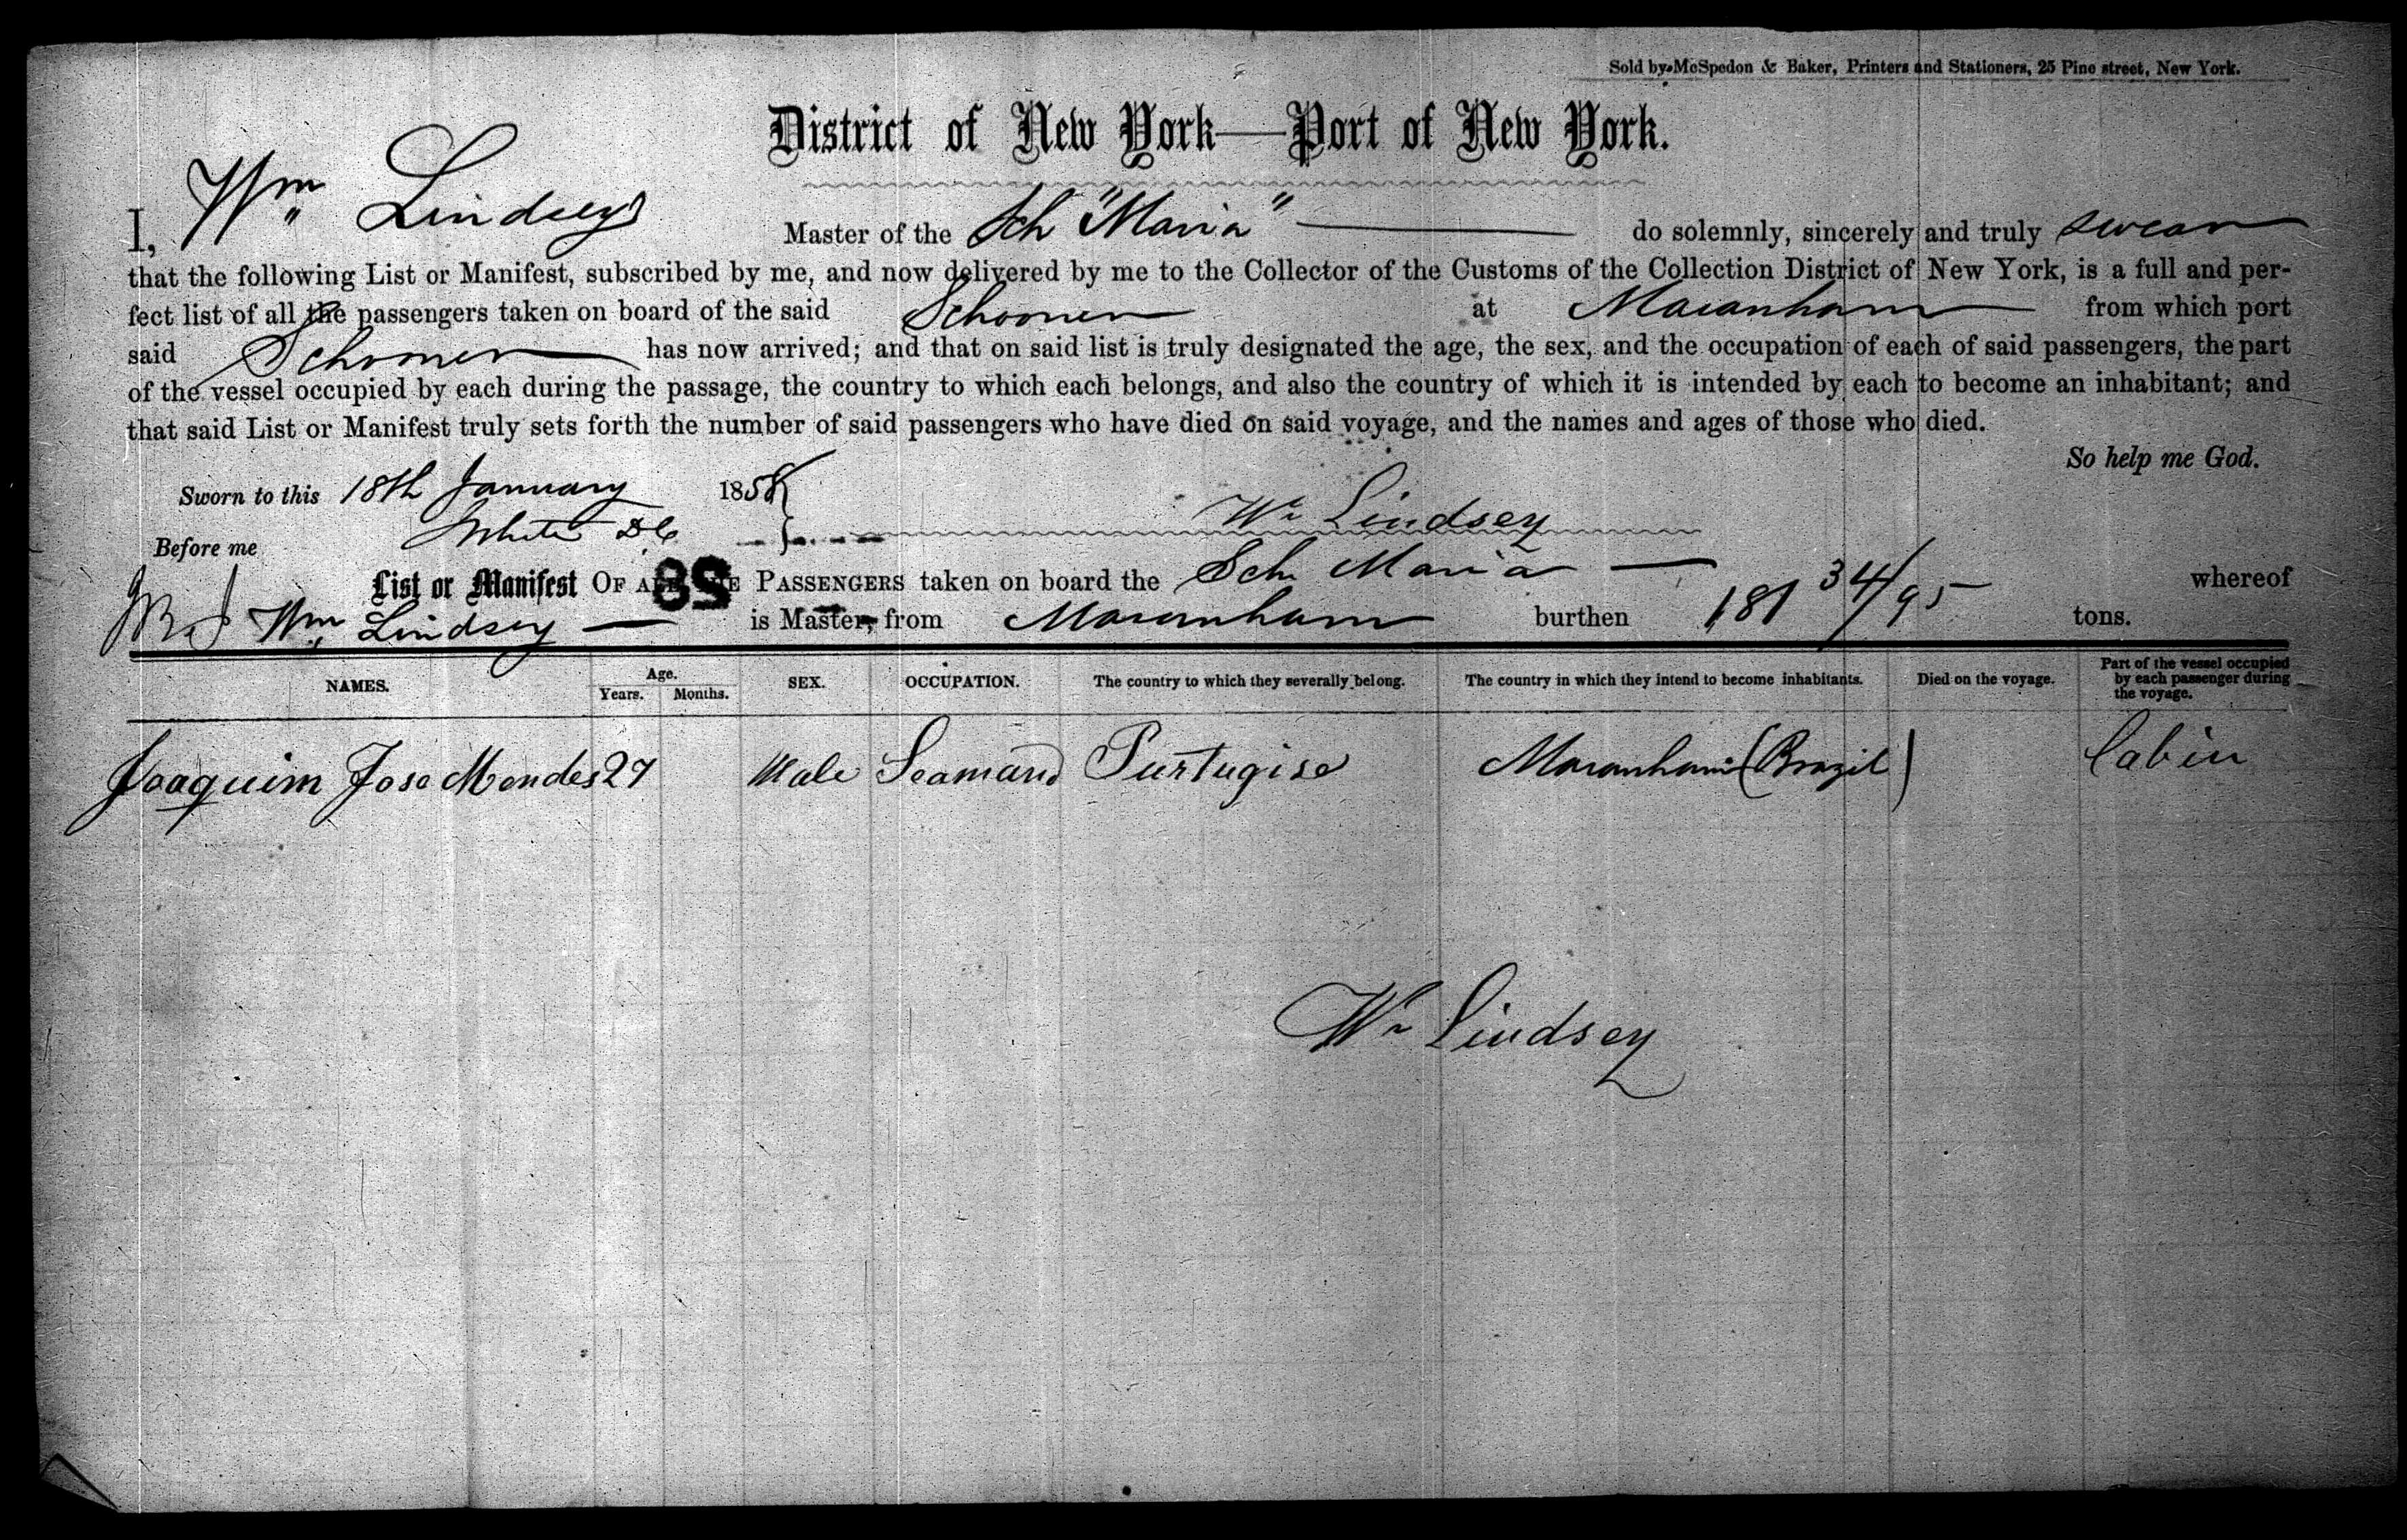 Sold by McSpedon & Baker, Printers and Stationers, 25 Pine street, New York.
District of New York—Port of New York.
I, Wm Lindsey Master of the Sch "Maria" do solemnly, sincerely and truly swear
that the following List or Manifest, subscribed by me, and now delivered by me to the Collector of the Customs of the Collection District of New York, is a full and per-
fect list of all the passengers taken on board of the said Schooner at Maranham from which port
said Schooner has now arrived; and that on said list is truly designated the age, the sex, and the occupation of each of said passengers, the part
of the vessel occupied by each during the passage, the country to which each belongs, and also the country of which it is intended by each to become an inhabitant; and
that said List or Manifest truly sets forth the number of said passengers who have died on said voyage, and the names and ages of those who died.
So help me God.
Sworn to this 18th January 1858
Wm Lindsey
Before me White
List or Manifest OF ALL THE PASSENGERS taken on board the Sch Maria whereof
Wm Lindsey is Master, from Maranham burthen 181 34/95 tons.
NAMES. Age. Years. Months. SEX. OCCUPATION. The country to which they severally belong. The country in which they intend to become inhabitants. Died on the voyage. Part of the vessel occupied by each passenger during the voyage.
Joaquim Jose Mendes 27 Male Seaman Purtugise Maranham (Brazil) Cabin
Wm Lindsey